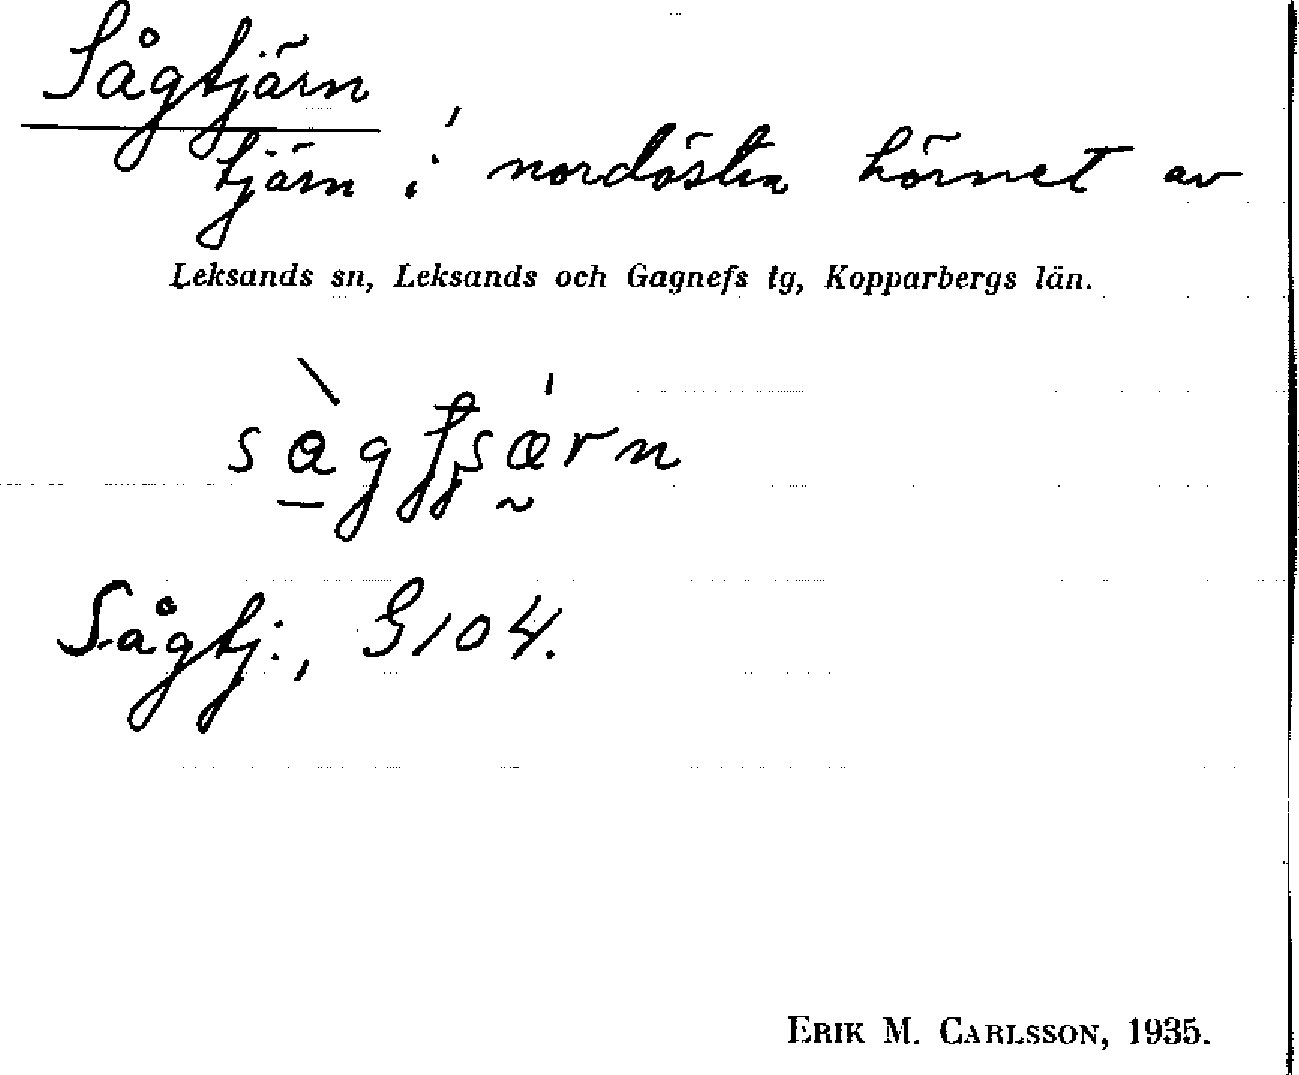 Sågtjärn
tjärn i nordöstra hörnet av
Leksands sn, Leksands och Gagnefs tg, Kopparbergs län.
Sågtj:, G104.
ERIK M. CARLSSON, 1935.